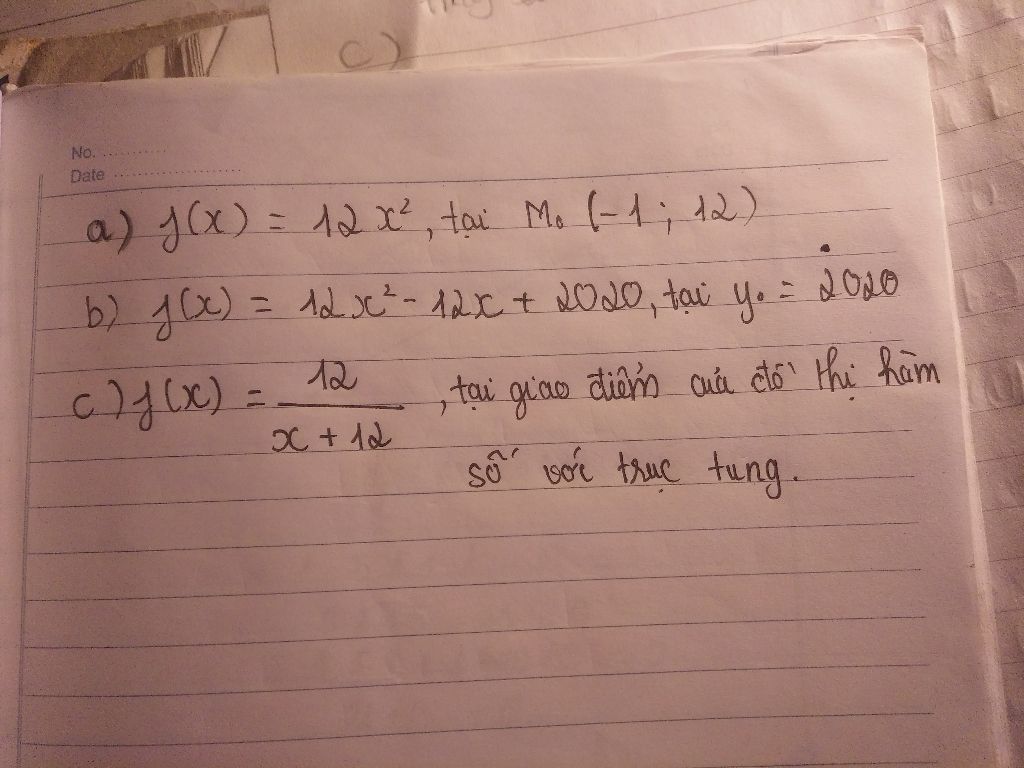 c)
No. ............
Date ........................
a) f(x) = 12x², tại M₀ (-1; 12)
b) f(x) = 12x² - 12x + 2020, tại y₀ = 2020
c) f(x) = 12 / (x + 12), tại giao điểm của đồ thị hàm
số với trục tung.